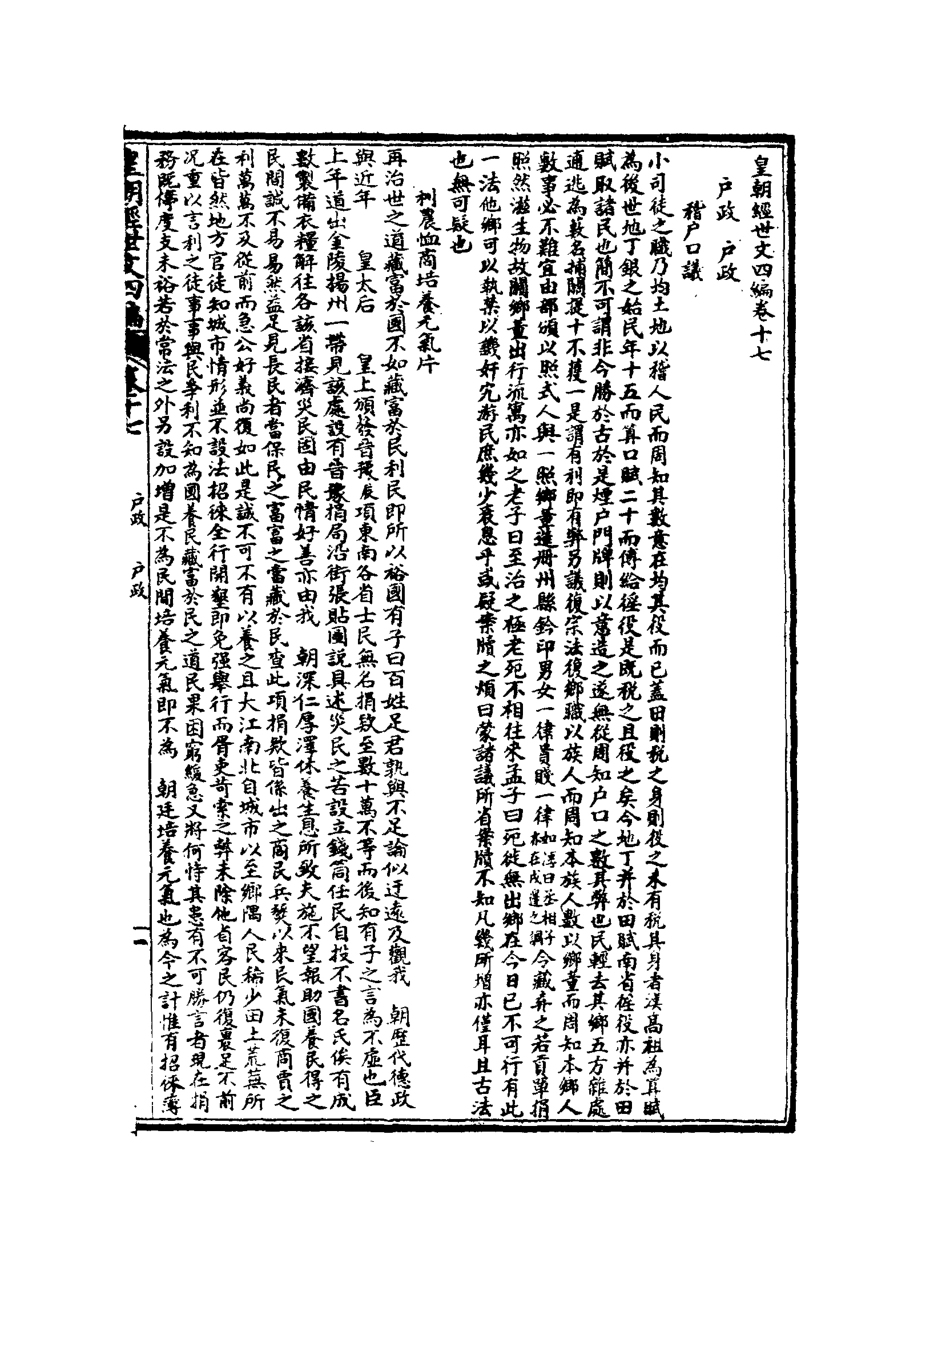 皇朝經世文四編卷十七
戶政　戶政
稽戶口議
小司徒之職乃均土地以稽人民而周知其數意在均其役而已蓋田則稅之身則役之未有稅其身者漢高祖為算賦
為後世地丁銀之始民年十五而算口賦二十而傅給徭役是既稅之且役之矣今地丁并於田賦南省徭役亦并於田
賦取諸民也簡不可謂非今勝於古於是煙戶門牌則以意造之遂無從周知戶口之數其弊也民輕去其鄉五方雜處
逋逃為藪名捕關提十不獲一是謂有利即有弊另議復宗法復鄉職以族人而周知本族人數以鄉董而周知本鄉人
數事必不難宜由部頒以照式人與一照鄉董造冊州縣鈐印男女一律貴賤一律如淳曰丞相子亦在戍邊之調今藏弆之若貢單捐
照然滋生物故關鄉董出行流寓亦如之老子曰至治之極老死不相往來孟子曰死徙無出鄉在今日已不可行有此
一法他鄉可以執某以譏奸宄游民庶幾少衰息乎或疑案牘之煩曰蒙諸議所省案牘不知凡幾所增亦僅耳且古法
也無可疑也
利農恤商培養元氣片
再治世之道藏富於國不如藏富於民利民即所以裕國有子曰百姓足君孰與不足論似迂遠及觀我　朝歷代德政
與近年　皇太后　皇上頒發晉豫反項東南各省士民無名捐致至數十萬不等而後知有子之言為不虛也臣
上年道出金陵揚州一帶見該處設有晉豫捐局沿街張貼圖說具述災民之苦設立錢筒任民自投不書名氏俟有成
數製備衣糧解往各該省接濟災民固由民情好善亦由我　朝深仁厚澤休養生息所致夫施不望報助國養民得之
民間誠不易易然益足見長民者當保民之富富之當藏於民查此項捐欵皆係出之商民兵燹以來民氣未復商賈之
利萬萬不及從前而急公好義尚復如此是誠不可不有以養之且大江南北自城市以至鄉隅人民稀少田土荒蕪所
在皆然地方官徒知城市情形並不設法招徠全行開墾即免强舉行而胥吏苛索之弊未除他省客民仍復裹足不前
况重以言利之徒事事與民爭利不知為國養民藏富於民之道民果困窮緩急又將何恃其患有不可勝言者現在捐
務既停度支未裕若於常法之外另設加增是不為民間培養元氣即不為　朝廷培養元氣也為今之計惟有招徠薄
皇朝經世文四編　卷十七　戶政　戶政　一